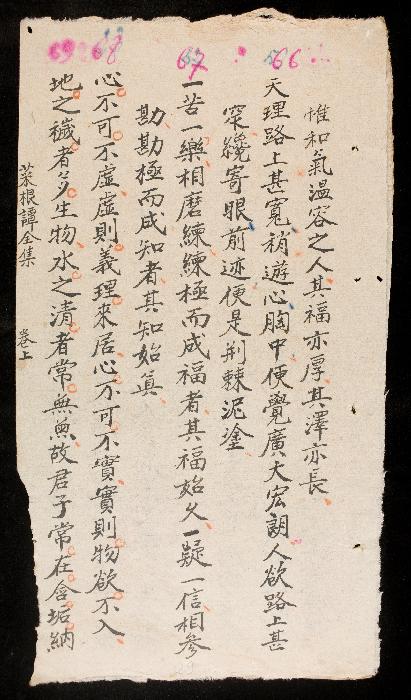 66
67
68
69
惟和氣溫容之人其福亦厚其澤亦長
天理路上甚寬稍遊心胸中便覺廣大宏朗人欲路上甚
窄纔寄眼前迹便是荊棘泥塗
一苦一樂相磨練練極而成福者其福始久一疑一信相參
勘勘極而成知者其知始眞
心不可不虛虛則義理來居心不可不實實則物欲不入
地之穢者多生物水之清者常無魚故君子常在含垢納
菜根譚全集 卷上